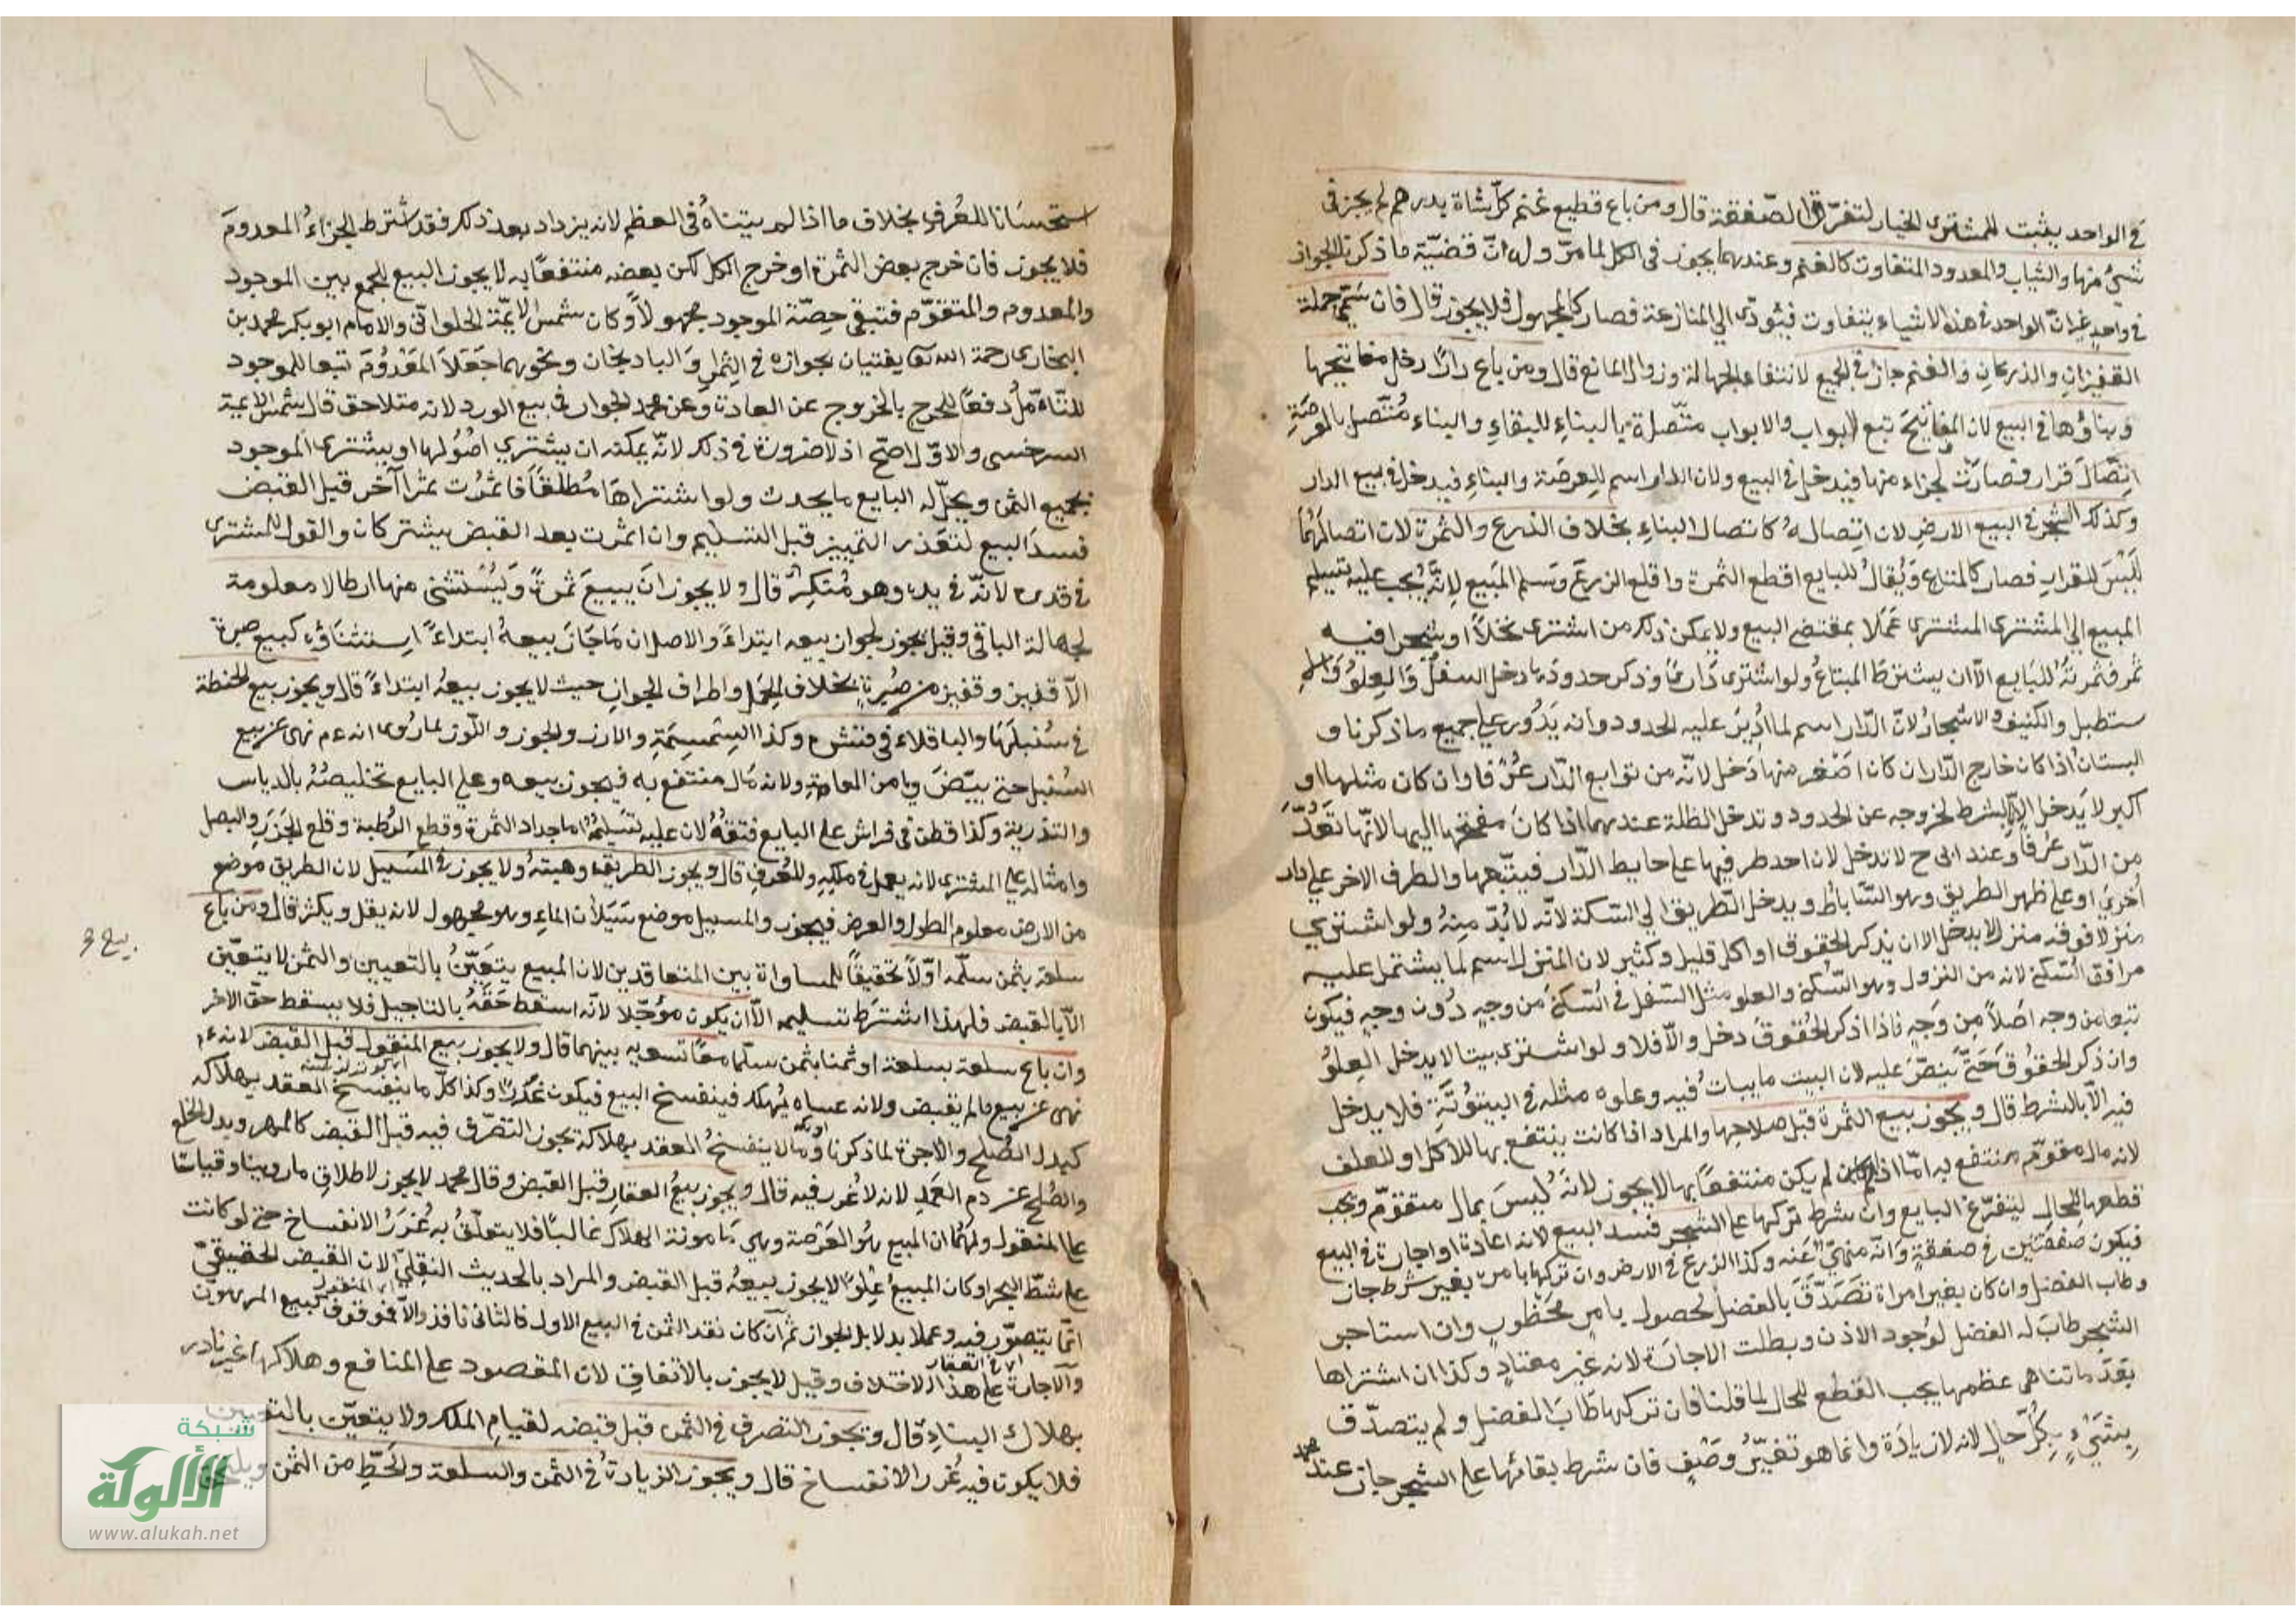 في الواحد يثبت للمشترى الخيار لتفرّق الصّفقة قال ومن باع قطيع غنم كلّ شاة بدرهم لم يجز في
شئ منها والثياب والمعدود المتفاوت كالغنم وعندهما يجوز في الكل لما مرّ وله انّ قضيّة ما ذكرنا الجواز
في واحد غير انّ الواحد في هذه الاشياء يتفاوت فيؤدّى الى المنازعة فصار كالمجهول فلا يجوز قال فان سمّى جملة
القفيزان والذرعان والغنم جاز في الجميع لانتفاء الجهالة وزوال المانع قال ومن باع دارًا دخل مفاتيحها
وبناؤها في البيع لان المفاتيح تبع لابواب والابواب متّصلة بالبناء للبقاء والبناء متّصل بالعرصة
اتصال قرار فصارت لجزء منها فيدخل في البيع ولان الدار اسم للعرصة والبناء فيدخل في بيع الدار
وكذلك الشجر في البيع الارض لان اتصاله كاتصال البناء بخلاف الذرع والثمرة لان اتصالهما
ليس للقرار فصار كالمتاع ويقال للبايع اقطع الثمرة واقلع الزرع وسلم المبيع لانه يجب عليه تسليم
المبيع الى المشترى المشترى عملا بمقتضى البيع ولا يمكن ذلك من اشترى نخلاً او شجرا فيه
ثمر فثمرته للبايع الا ان يشترط المبتاع ولو اشترى دارًا وذكر حدودها دخل السفل والعلو والا
ستطبل والكنيف والاشجار لانّ الدّار اسم لما ادير عليه الحدود وانه يدور على جميع ما ذكرنا و
البستان اذا كان خارج الدّار ان كان اصغر منها دخل لانّه من توابع الدّار عرفا وان كان مثلها او
اكبر لا يدخل الا بالشرط لخروجه عن الحدود وتدخل الظلة عندهما اذا كان مفتحها اليها لانّها تعدّ
من الدّار عرفا وعند ابى ح لا تدخل لان احد طرفيها على حايط الدّار فيتبعها والطرف الاخر على دار
اخرى او على ظهر الطريق وهو السّاباط ويدخل الطّريق الى السّكة لانّه لا بدّ منه ولو اشترى
منزلا فوقه منزل لا يدخل الا ان يذكر الحقوق او اكل قليل وكثير لان المنزل اسم لما يشتمل عليه
مرافق السّكنى لانه من النزول وهو السّكنى والعلو مثل السّفل في السّكنى من وجه دون وجه فيكون
تبعا من وجه اصلاً من وجه فاذا ذكر الحقوق دخل والّا فلا ولو اشترى بيتا لا يدخل العلو
وان ذكر الحقوق حتّى ينصّ عليه لان البيت ما يبات فيه وعلوه مثله في البيتوتة فلا يدخل
فيه الّا بالشرط قال ويجوز بيع الثمرة قبل صلاحها والمراد اذا كانت ينتفع بها للاكل او للعلف
لانه مال متقوّم منتفع به امّا اذا لم يكن منتفعًا بها لا يجوز لانه ليس بمال متقوّم ويجب
قطعها للحال ليتفرّغ البايع وان شرط تركها على الشجر فسد البيع لانه اعادة او اجارة في البيع
فيكون صفقتين في صفقة وانّه منهىّ عنه وكذا الزرع في الارض وان تركها بامره بغير شرط جاز
وطاب الفضل وان كان بغير امراة تصدّق بالفضل لحصوله بامر محظور وان استاجر
الشجر طاب له الفضل لوجود الاذن وبطلت الاجارة لانه غير معتاد وكذا ان اشتراها
بعد ما تناهى عظمها يجب القطع للحال لما قلنا فان تركها طاب الفضل ولم يتصدّق
بشئ بكلّ حال لانه لا زيادة وانما هو تغيّر وصف فان شرط بقائها على الشجر جاز عند محمد
استحسانا للعرف بخلاف ما اذا لم يتناه في العظم لانه يزداد بعد ذلك فقد اشترط الجزء المعدوم
فلا يجوز فان خرج بعض الثمرة او خرج الكل لكن بعضه منتفعا به لا يجوز البيع للجمع بين الموجود
والمعدوم والمتقوّم فتبقى حصّة الموجود مجهولاً وكان شمس الايمّة الحلواني والامام ابو بكر محمد بن
البخارى رحمة الله تع يفتيان بجوازه في الثمار والبادنجان ونحوهما جعلا المعدوم تبعا للموجود
للتامل دفعًا للحرج بالخروج عن العادة وعن محمد الجواز في بيع الورد لانه متلاحق قال شمس الايمة
السرخسى والاوّل اصحّ اذ لا ضرورة في ذلك لانّه يمكنه ان يشترى اصولها او يشترى الموجود
بجميع الثمن ويحلّ له البايع ما يحدث ولو اشتراها مطلقًا فاثمرت ثمرا آخر قبل القبض
فسد البيع لتعذر التمييز قبل التسليم وان اثمرت بعد القبض يشتركان والقول للمشترى
في قدره لانّه في يده وهو منكر قال ولا يجوز ان يبيع ثمرة ويستثنى منها ارطالا معلومة
لجهالة الباقى وقيل يجوز لجواز بيعه ابتداء والاصل ان ما جاز بيعه ابتداء استثناؤه كبيع صبرة
الّا قفيز وقفيز من صبرة بخلاف الحمل واطراف الحيوان حيث لا يجوز بيعه ابتداء قال ويجوز بيع الحنطة
في سنبلها والباقلاء في قشره وكذا السمسمة والارز والجوز واللّوز لما روى انه ءم نهى عن بيع
السنبل حتى يبيّض ويامن العاهة ولانه مال منتفع به فيجوز بيعه وعلى البايع تخليصه بالدياس
والتذرية وكذا قطن في فراش على البايع فتقه لان عليه تسليمه اما جداد الثمرة وقطع الرّطبة وقلع الجزر والبصل
وامثاله على المشترى لانه يعمل في ملكه وللعرف قال ويجوز الطريق وهبته ولا يجوز في المسيل لان الطريق موضع
من الارض معلوم الطول والعرض فيجوز والمسيل موضع سيلان الماء وهو مجهول لانه يقل ويكثر قال ومن باع
سلعة بثمن سلّمه اوّلاً تحقيقًا للمساواة بين المتعاقدين لان المبيع يتعيّن بالتعيين والثمن لا يتعيّن
الّا بالقبض فلهذا اشترط تسليمه الّا ان يكون مؤجّلا لانّه اسقط حقّه بالتاجيل فلا يسقط حقّ الاخر
وان باع سلعة بسلعة او ثمنا بثمن سلّما معًا تسوية بينهما قال ولا يجوز بيع المنقول قبل القبض لانه ءم
نهى عن بيع ما لم يقبض ولانه عساه يهلك فينفسخ البيع فيكون غررا وكذا كلّ ما ينفسخ العقد بهلاكه
كبدل الصّلح والاجرة لما ذكرنا وما لا ينفسخ العقد بهلاكه يجوز التصرّف فيه قبل القبض كالمهر وبدل الخلع
والصّلح عن دم العمد لانه لا غرر فيه قال ويجوز بيع العقار قبل القبض وقال محمد لا يجوز لاطلاق ما روينا وقياسًا
على المنقول ولهما ان المبيع هو العرصة وهى مامونة الهلاك غالبًا فلا يتعلّق به غرر الانفساخ حتى لو كانت
على شطّ البحر او كان المبيع علوا لا يجوز بيعه قبل القبض والمراد بالحديث النقلى لان القبض الحقيقىّ
انّما يتصوّر فيه وعملا بدلايل الجواز ثم ان كان نقد الثمن في البيع الاول فالثانى نافذ والّا فموقوف كبيع المرهون
والاجارة على هذا الاختلاف وقيل لا يجوز بالاتفاق لان المقصود على المنافع وهلاكها غير نادر
بهلاك البناء قال ويجوز التصرف في الثمن قبل قبضه لقيام الملك ولا يتعيّن بالتعيين
فلا يكون فيه غرر الانفساخ قال ويجوز الزيادة في الثمن والسلعة والحطّ من الثمن ويلتحق
شبكة
الألوكة
www.alukah.net